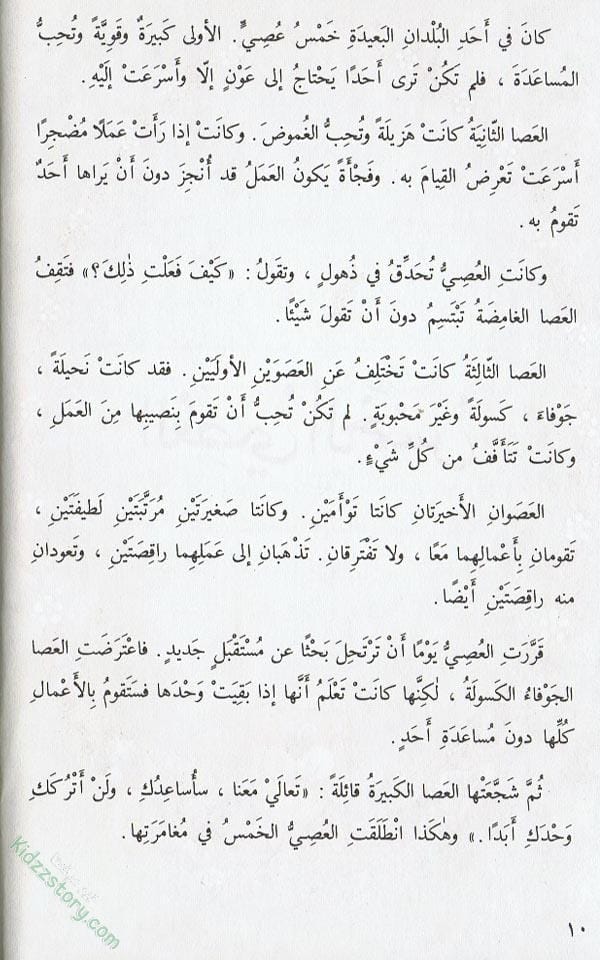 كانَ في أَحَدِ البُلْدانِ البَعيدَةِ خَمْسُ عُصِيٍّ. الأولى كَبيرَةٌ وقَوِيَّةٌ وتُحِبُّ
المُساعَدَةَ ، فلم تَكُنْ تَرى أَحَدًا يَحْتاجُ إلى عَوْنٍ إلّا وأَسْرَعَتْ إلَيْهِ.
العَصا الثّانِيَةُ كانَتْ هَزيلَةً وتُحِبُّ الغُموضَ. وكانَتْ إذا رَأَتْ عَمَلًا مُضْجِرًا
أَسْرَعَتْ تَعْرِضُ القِيامَ به. وفَجْأَةً يَكونُ العَمَلُ قد أُنْجِزَ دونَ أَنْ يَراها أَحَدٌ
تَقومُ به.
وكانَتِ العُصِيُّ تُحَدِّقُ في ذُهولٍ ، وتقولُ : «كَيْفَ فَعَلْتِ ذٰلِكَ؟» فتَقِفُ
العَصا الغامِضَةُ تَبْتَسِمُ دونَ أَنْ تَقولَ شَيْئًا.
العَصا الثّالِثَةُ كانَتْ تَخْتَلِفُ عَنِ العَصَوَيْنِ الأولَيَيْنِ. فقد كانَتْ نَحيلَةً ،
جَوْفاءَ ، كَسولَةً وغَيْرَ مَحْبوبَةٍ. لم تَكُنْ تُحِبُّ أَنْ تَقومَ بِنَصيبِها مِنَ العَمَلِ ،
وكانَتْ تَتَأَفَّفُ من كُلِّ شَيْءٍ.
العَصَوانِ الأَخيرَتانِ كانَتا تَوْأَمَيْنِ. وكانَتا صَغيرَتَيْنِ مُرَتَّبَتَيْنِ لَطيفَتَيْنِ ،
تَقومانِ بِأَعْمالِهِما مَعًا ، ولا تَفْتَرِقانِ. تَذْهَبانِ إلى عَمَلِهِما راقِصَتَيْنِ ، وتَعودانِ
منه راقِصَتَيْنِ أَيْضًا.
قَرَّرَتِ العُصِيُّ يَوْمًا أَنْ تَرْتَحِلَ بَحْثًا عن مُسْتَقْبَلٍ جَديدٍ. فاعْتَرَضَتِ العَصا
الجَوْفاءُ الكَسولَةُ ، لٰكِنَّها كانَتْ تَعْلَمُ أَنَّها إذا بَقِيَتْ وَحْدَها فسَتَقومُ بِالأَعْمالِ
كُلِّها دونَ مُساعَدَةِ أَحَدٍ.
ثُمَّ شَجَّعَتْها العَصا الكَبيرَةُ قائِلَةً : «تَعالَيْ مَعَنا ، سأُساعِدُكِ ، ولَنْ أَتْرُكَكِ
وَحْدَكِ أَبَدًا.» وهٰكَذا انْطَلَقَتِ العُصِيُّ الخَمْسُ في مُغامَرَتِها.
Kidzzstory.com
١٠